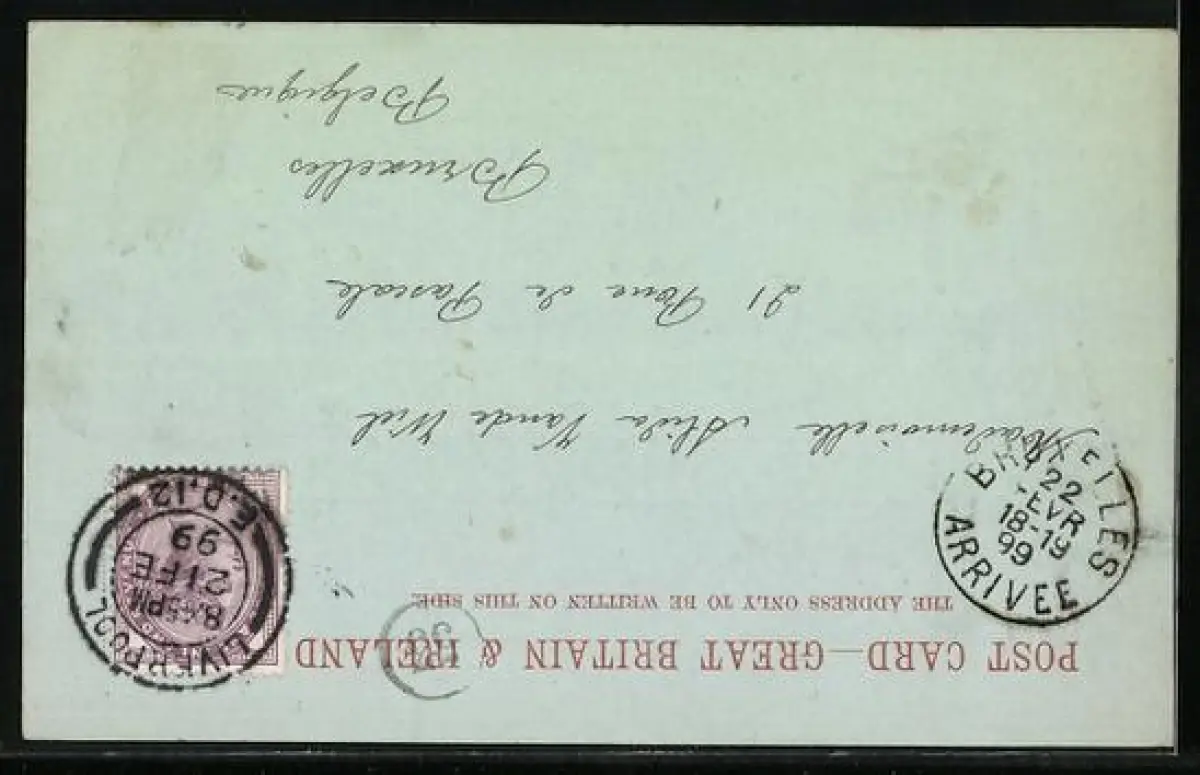 POST CARD—GREAT BRITAIN & IRELAND
THE ADDRESS ONLY TO BE WRITTEN ON THIS SIDE.
LIVERPOOL
8.45PM
21 FE
99
E.D.12
BRUXELLES
22
FEVR
18-19
99
ARRIVEE
Mademoiselle Alida Vande Wiel
21 Rue de Pascale
Bruxelles
Belgique